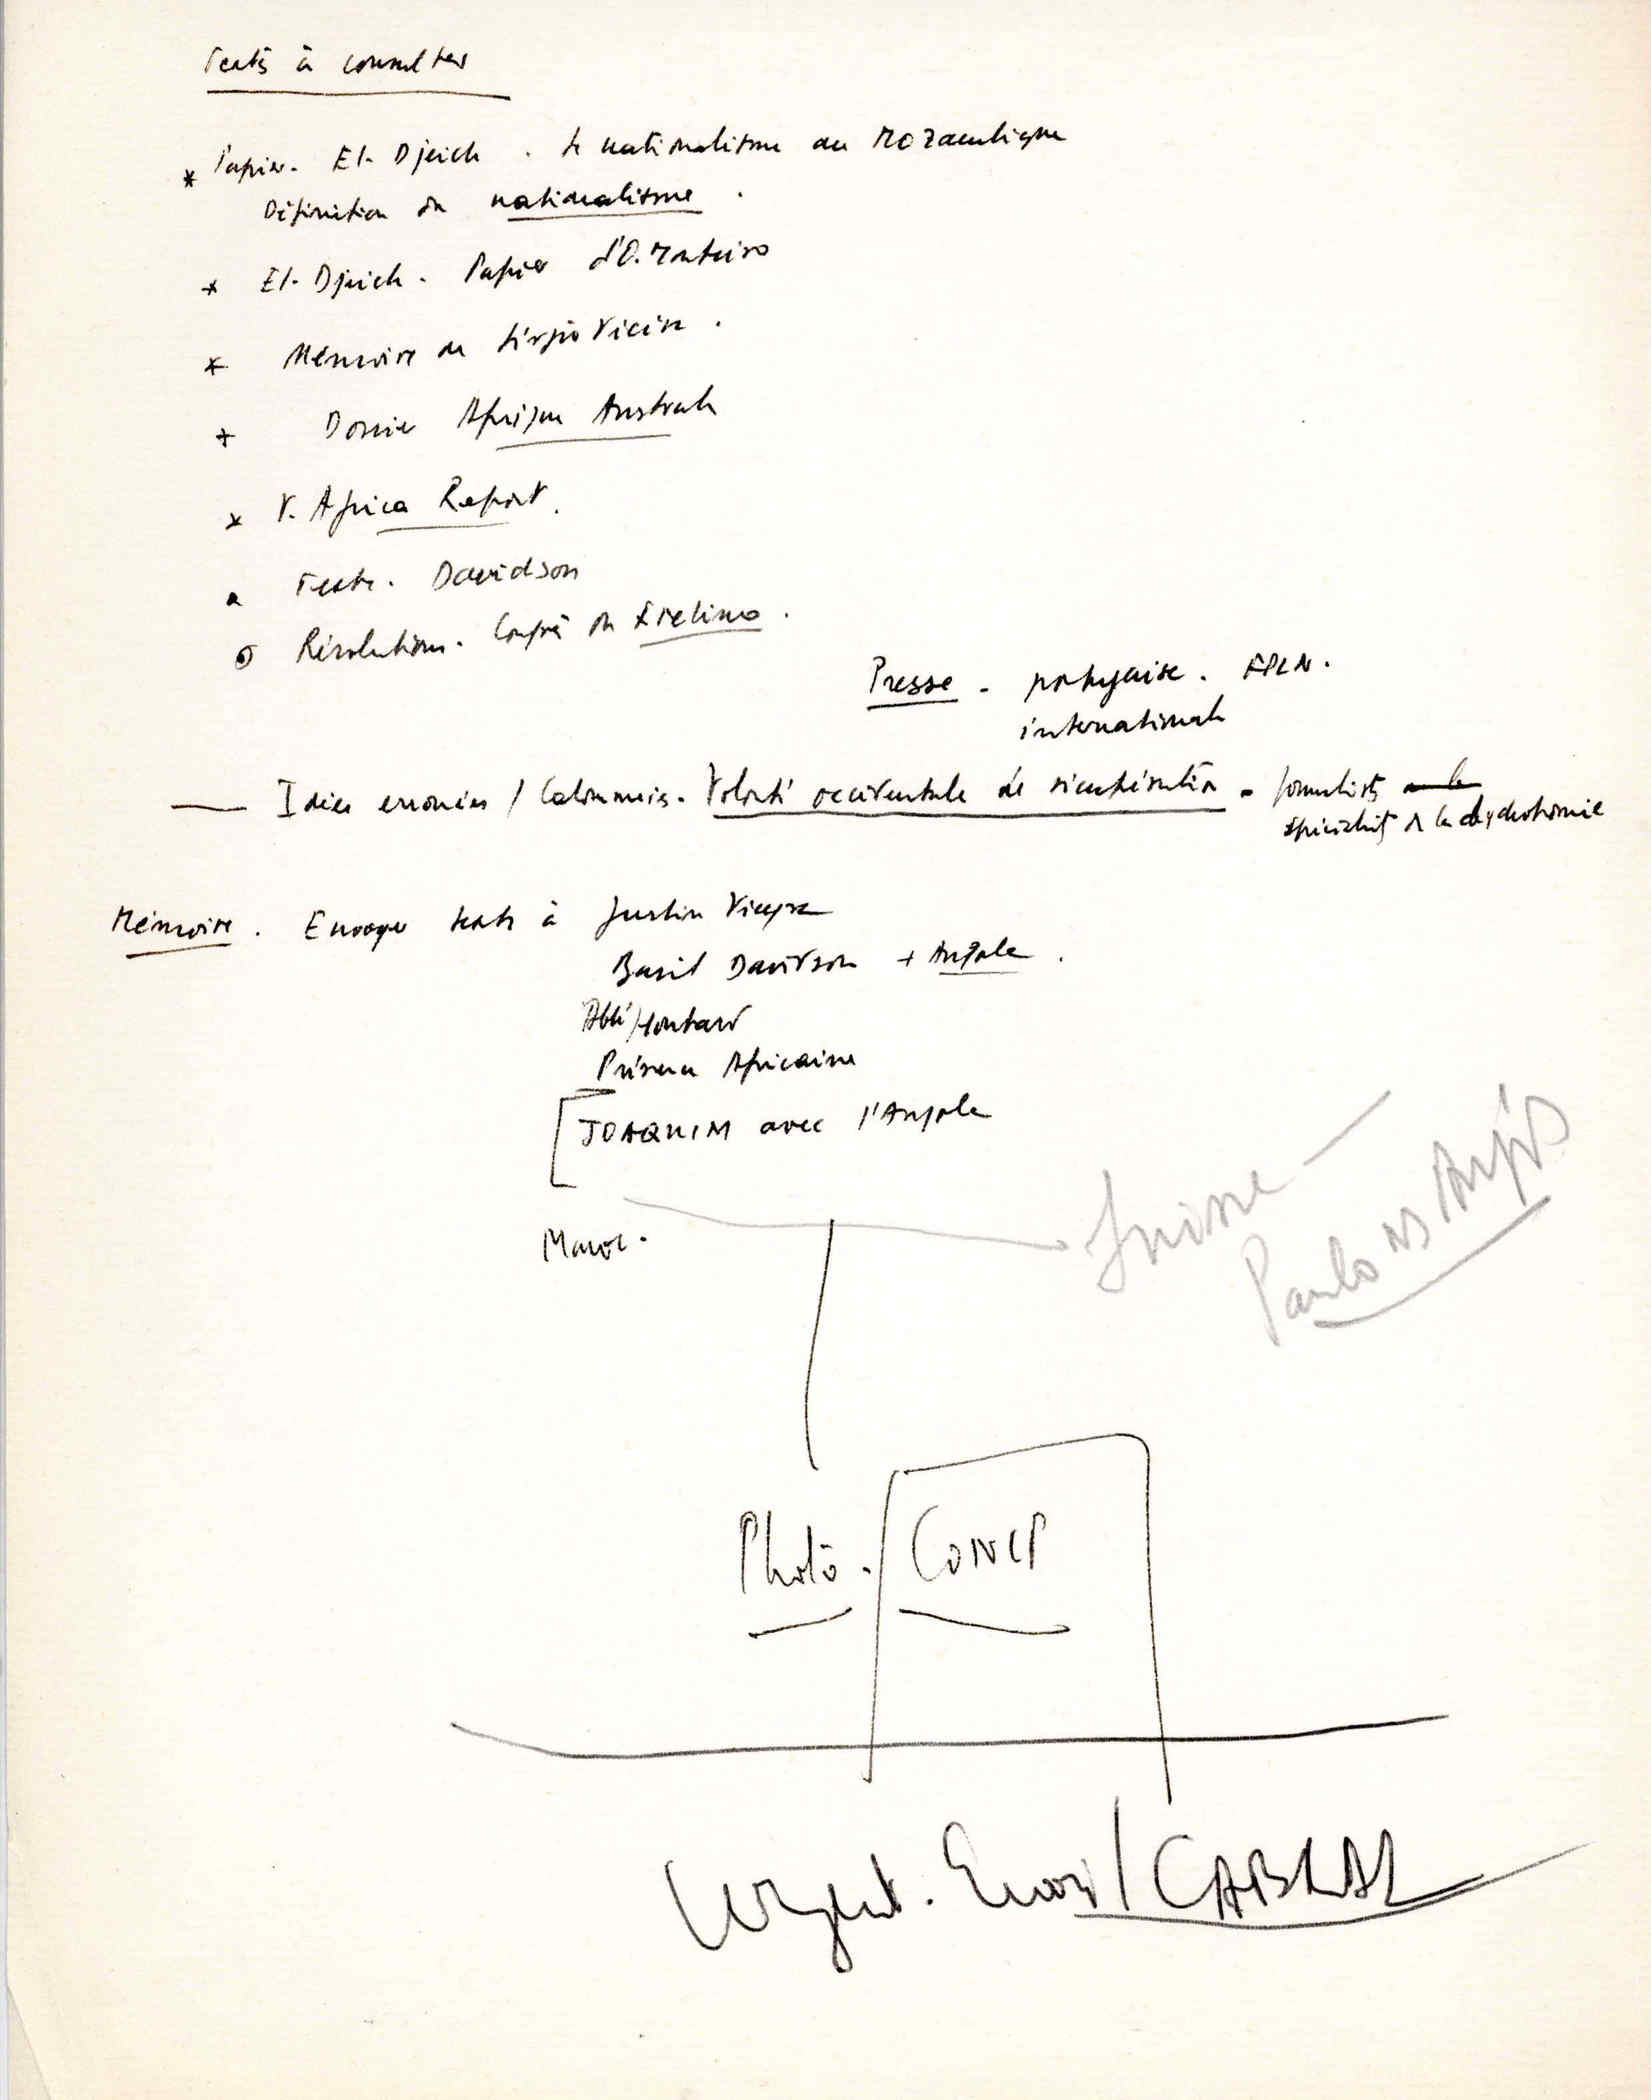 Textes à consulter
* Papier. El-Djeich. Le nationalisme au Mozambique
Définition du nationalisme.
* El-Djeich. Papier d'O. Monteiro
* Mémoire de Sérgio Vieira.
* Dossier Afrique Australe
* V. Africa Report.
Texte. Davidson
Résolutions. Congrès du Frelimo.
Presse - portugaise. FPLN.
internationale
— Idées erronées / Calomnies. Volonté occidentale de - journalistes
spécialistes de la
Mémoire. Envoyer texte à Justin Vieyra
Basil Davidson + Angola.
Abbé Houtart
Présence Africaine
[JOAQUIM avec l'Angola
Maroc.
Suisse —
Paulo
Photo. / CONCP
Urgent. Envoi / CABRAL